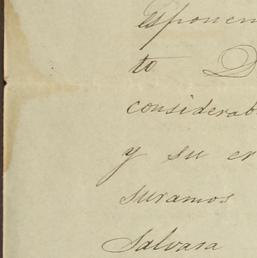 esponem
to D
considerab
y su er
suramos
Salvara